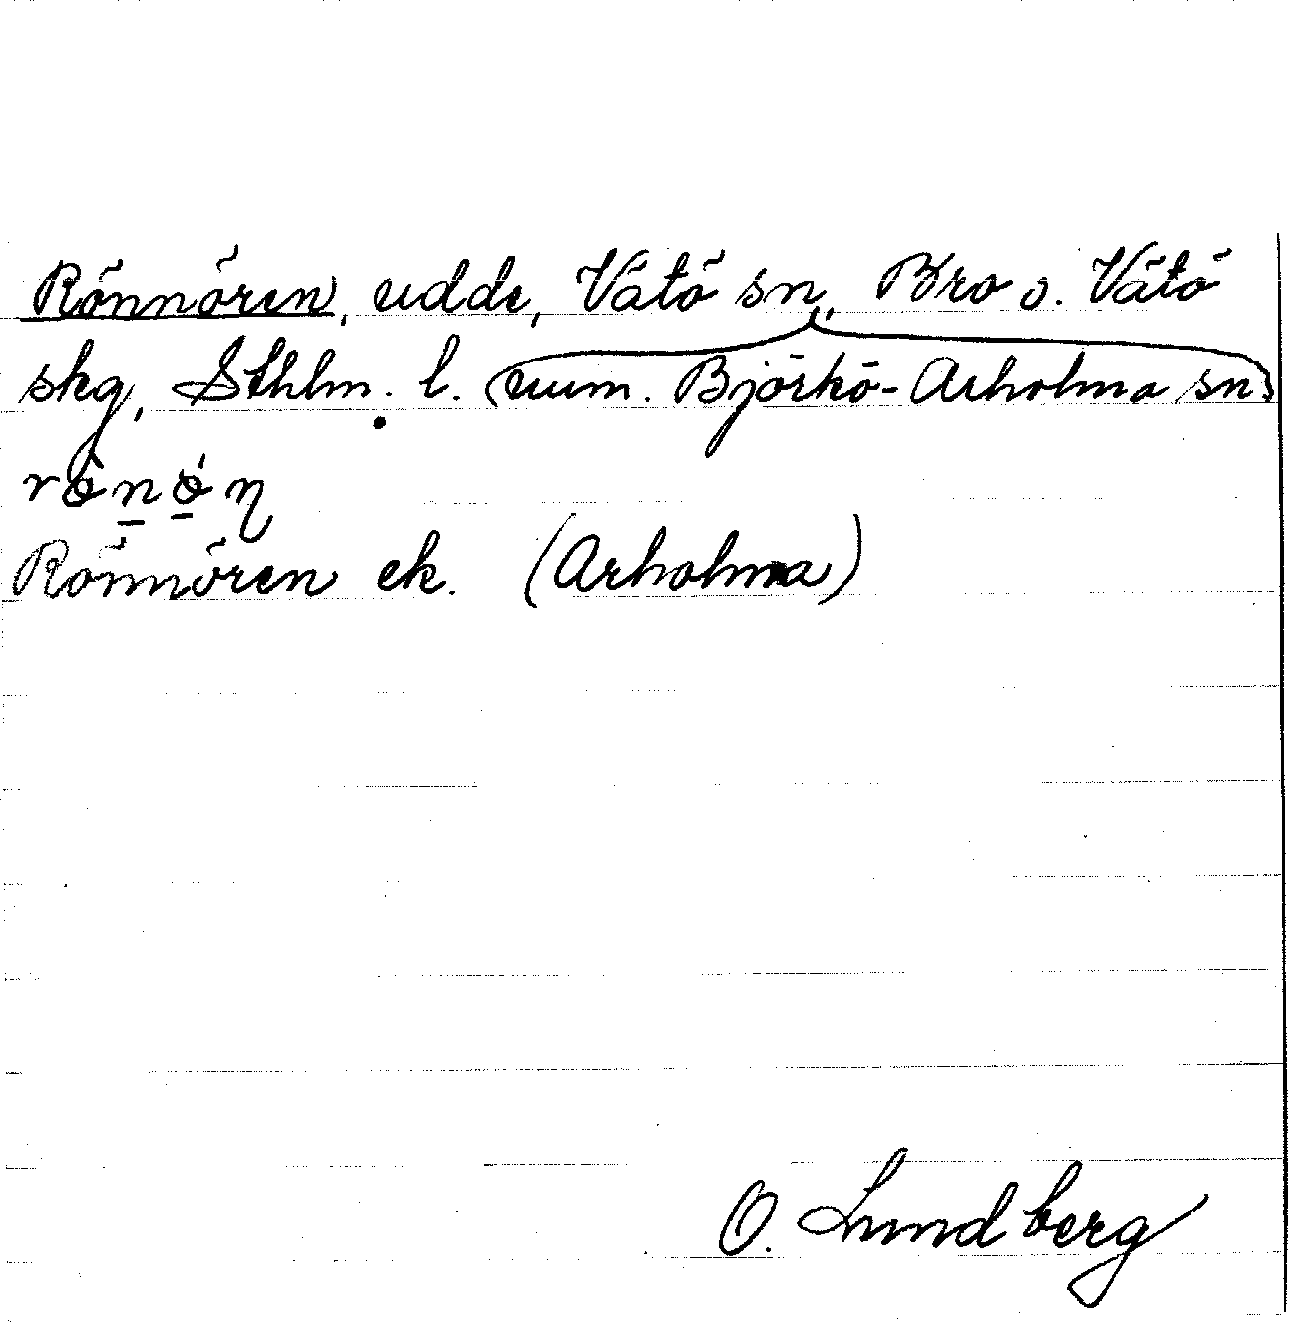 Rönnören, udde, Vätö sn, Bro o. Vätö
skg, Sthlm. l. (num. Björkö-Arholma sn)
Rönnören ek. (Arholma)
O. Lundberg